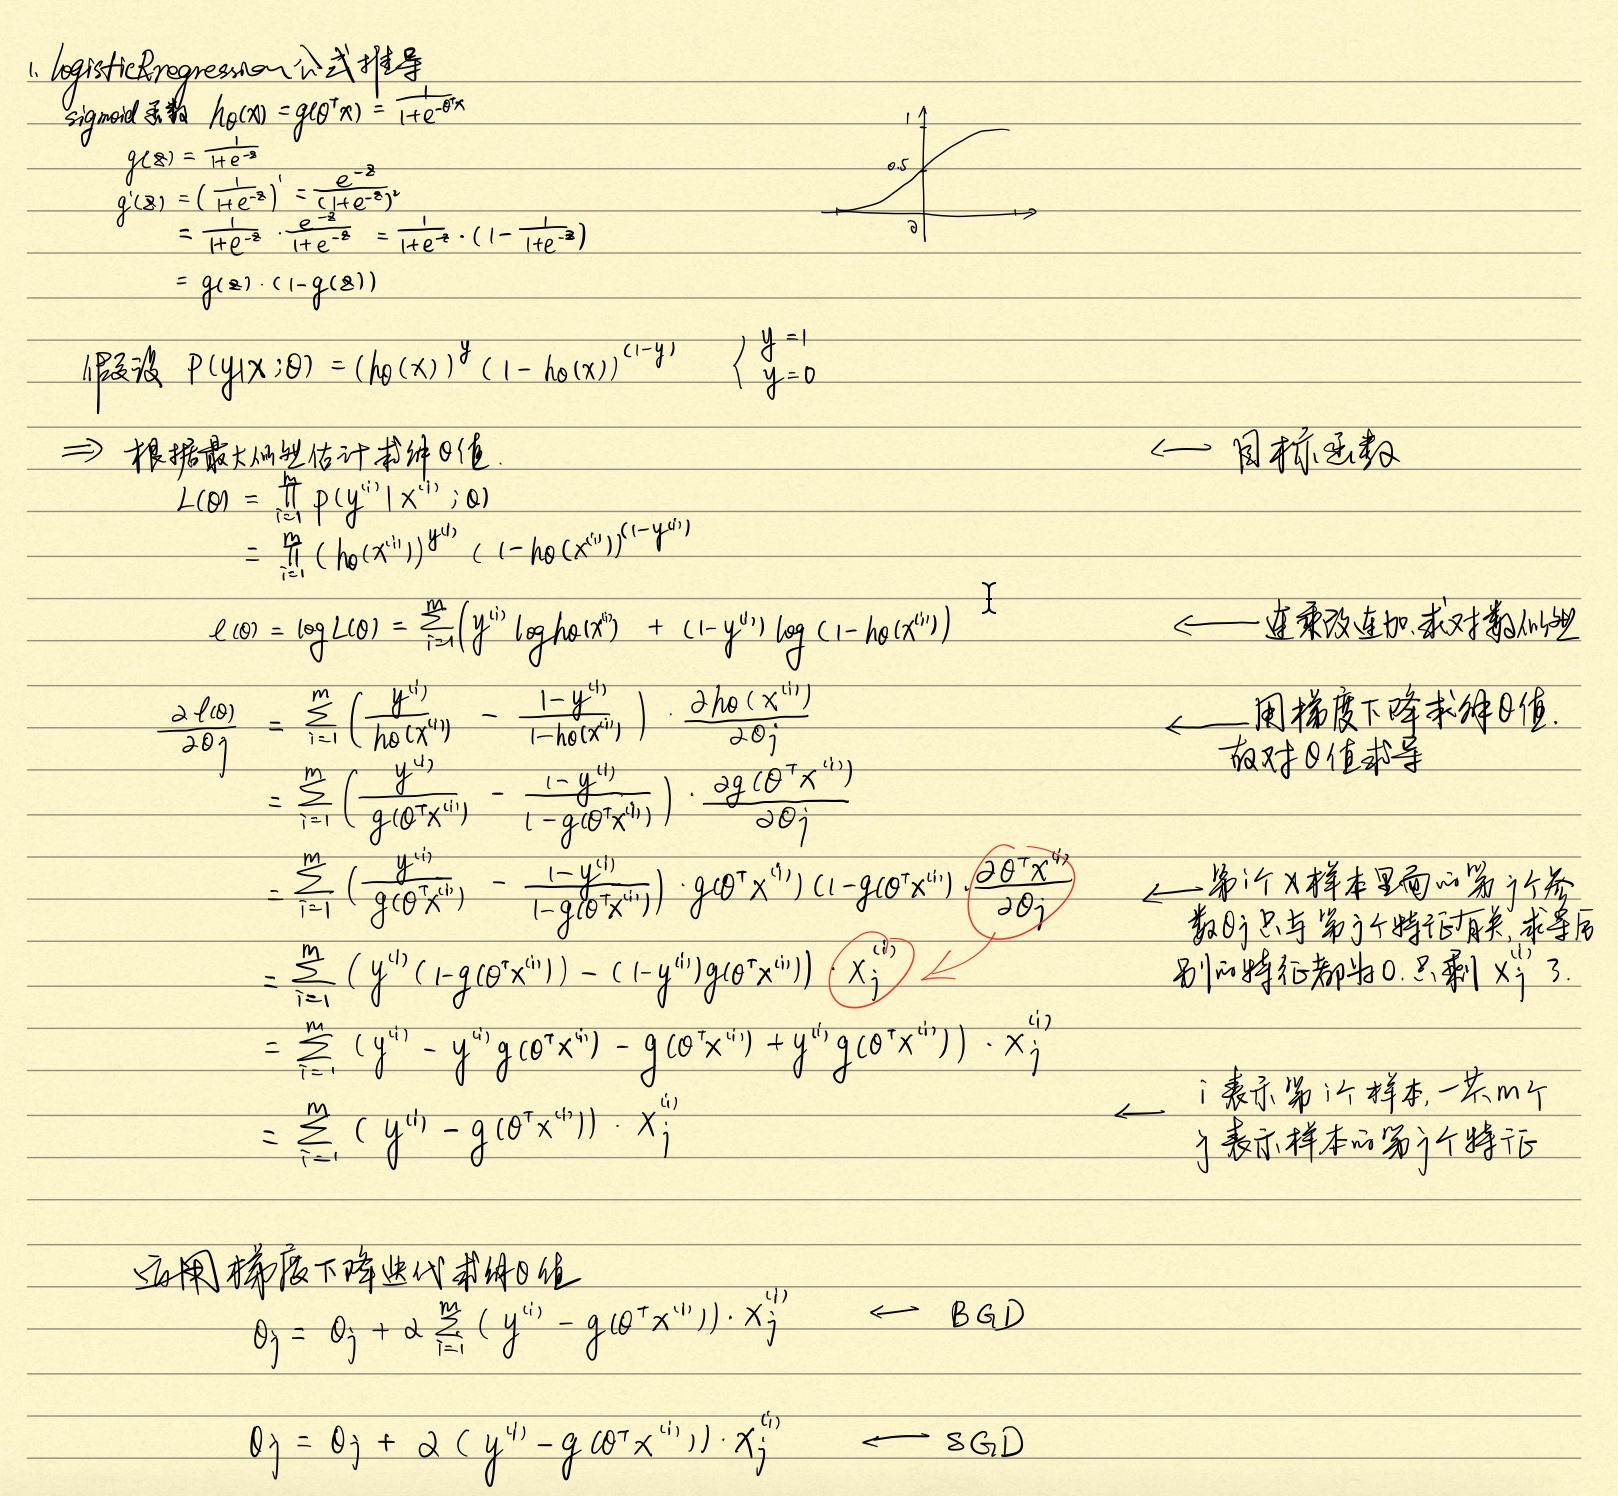 1. logisticRregression公式推导
sigmoid函数 hθ(x) = g(θᵀx) = 1/(1+e^(-θᵀx))
g(z) = 1/(1+e^(-z))
g'(z) = (1/(1+e^(-z)))' = e^(-z)/(1+e^(-z))²
= 1/(1+e^(-z)) · e^(-z)/(1+e^(-z)) = 1/(1+e^(-z)) · (1 - 1/(1+e^(-z)))
= g(z) · (1-g(z))
1
0.5
0
假设 P(y|x;θ) = (hθ(x))^y (1-hθ(x))^(1-y) { y=1
y=0
⇒ 根据最大似然估计求解θ值. ← 目标函数
L(θ) = ∏_{i=1}^{m} P(y^(i)|x^(i);θ)
= ∏_{i=1}^{m} (hθ(x^(i)))^{y^(i)} (1-hθ(x^(i)))^{(1-y^(i))}
ℓ(θ) = log L(θ) = ∑_{i=1}^{m} (y^(i) log hθ(x^(i)) + (1-y^(i)) log (1-hθ(x^(i))) ← 连乘改连加,求对数似然
∂ℓ(θ)/∂θj = ∑_{i=1}^{m} (y^(i)/hθ(x^(i)) - (1-y^(i))/(1-hθ(x^(i)))) · ∂hθ(x^(i))/∂θj ← 用梯度下降求解θ值.
故对θ值求导
= ∑_{i=1}^{m} (y^(i)/g(θᵀx^(i)) - (1-y^(i))/(1-g(θᵀx^(i)))) · ∂g(θᵀx^(i))/∂θj
= ∑_{i=1}^{m} (y^(i)/g(θᵀx^(i)) - (1-y^(i))/(1-g(θᵀx^(i)))) · g(θᵀx^(i)) (1-g(θᵀx^(i)) · ∂θᵀx^(i)/∂θj ← 第i个x样本里面的第j个参
数θj只与第j个特征有关,求导后
别的特征都为0.只剩 xj^(i) 了.
= ∑_{i=1}^{m} (y^(i)(1-g(θᵀx^(i))) - (1-y^(i))g(θᵀx^(i))) · xj^(i)
= ∑_{i=1}^{m} (y^(i) - y^(i)g(θᵀx^(i)) - g(θᵀx^(i)) + y^(i)g(θᵀx^(i))) · xj^(i)
= ∑_{i=1}^{m} (y^(i) - g(θᵀx^(i))) · xj^(i) ← i表示第i个样本,一共m个
j表示样本的第j个特征
应用梯度下降迭代求解θ值
θj = θj + α ∑_{i=1}^{m} (y^(i) - g(θᵀx^(i))) · xj^(i) ← BGD
θj = θj + α (y^(i) - g(θᵀx^(i))) · xj^(i) ← SGD